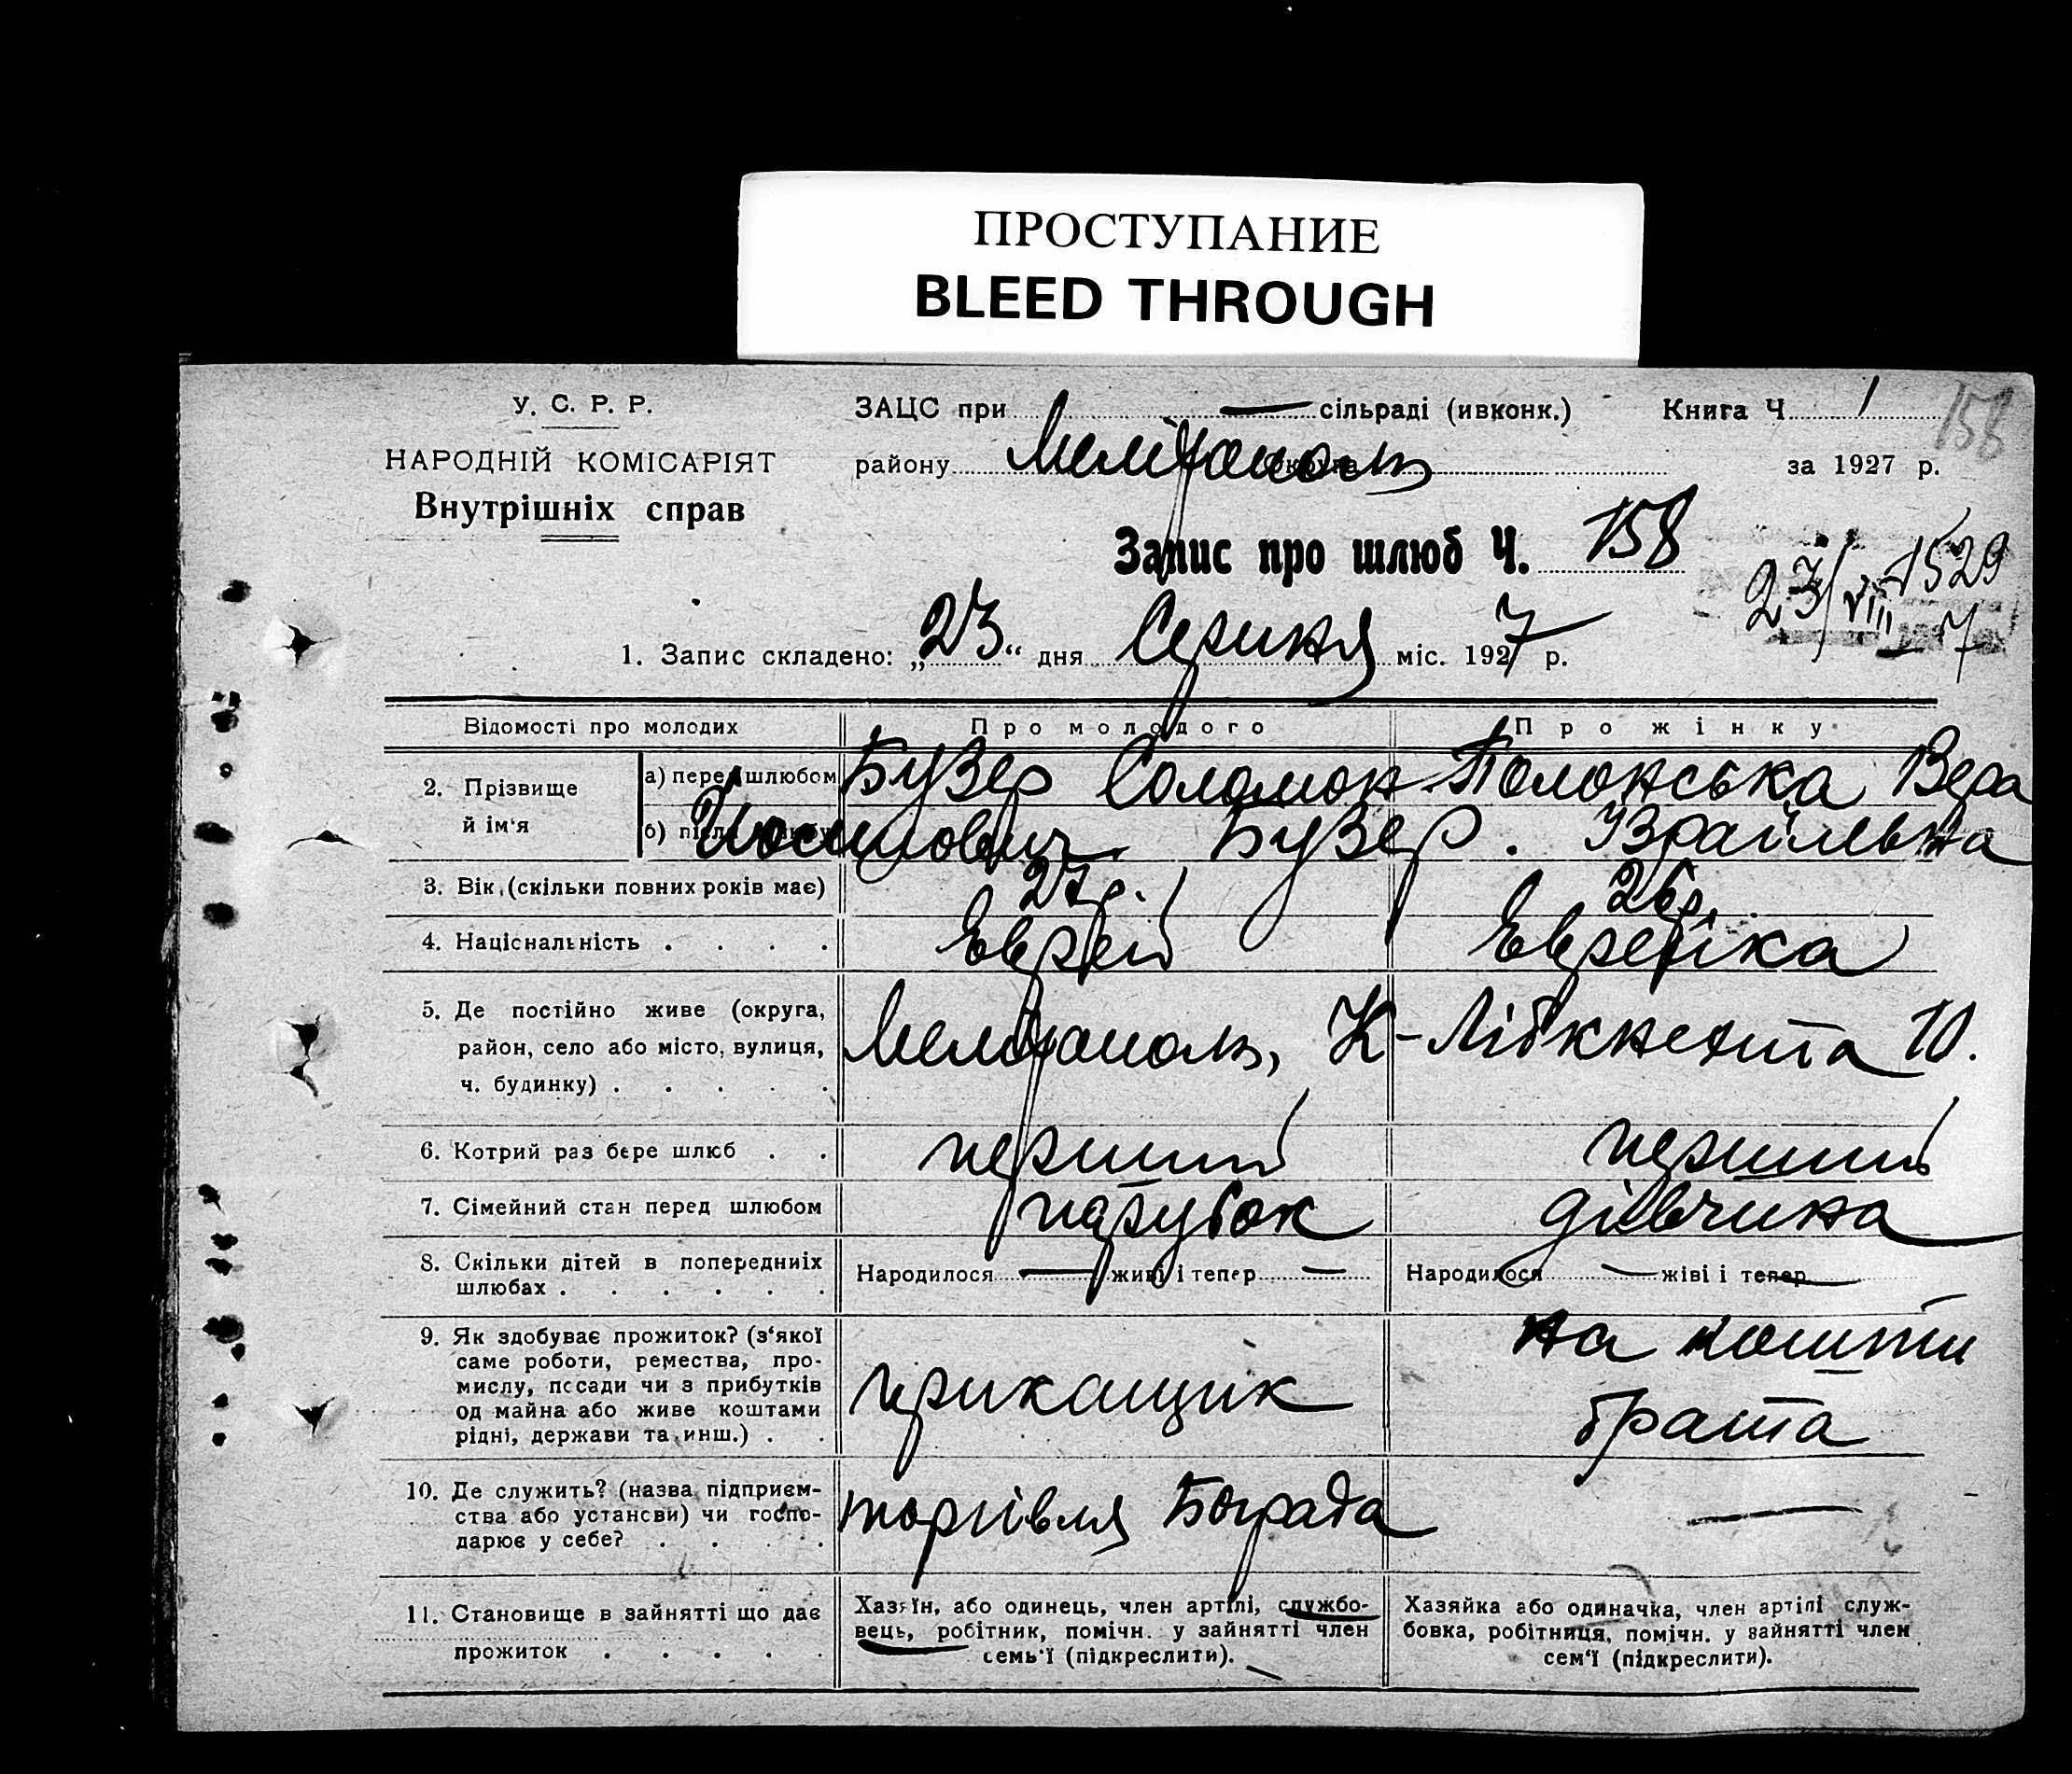 ПРОСТУПАНИЕ
BLEED THROUGH
У. С. Р. Р.
НАРОДНІЙ КОМІСАРІЯТ
Внутрішніх справ
ЗАЦС при — сільраді (ивконк.) Книга Ч. 1
158
району Мелітополь за 1927 р.
Запис про шлюб Ч. 158
23/VIII 1529
7
1. Запис складено: „23“ дня Серпня міс. 1927 р.
Відомості про молодих Про молодого Про жінку
2. Прізвище й ім'я
а) перед шлюбом Бузер Соломон Полонська Вера
б) після шлюбу Йосипович. Бузер. Ізраїльвна
3. Вік (скільки повних років має) 27 р. 26 р.
4. Національність . . . . Еврей Еврейка
5. Де постійно живе (округа,
район, село або місто, вулиця, Мелітополь, К-Лібкнехта 10.
ч. будинку) . . . . .
6. Котрий раз бере шлюб . . перший перший
7. Сімейний стан перед шлюбом парубок дівчина
8. Скільки дітей в попередніх
шлюбах . . . . . . Народилося — живі і тепер — Народилося — живі і тепер —
9. Як здобуває прожиток? (з'якої
саме роботи, ремества, про-
мислу, посади чи з прибутків
од майна або живе коштами
рідні, держави та инш.) . .
прикащик
на кошти
брата
10. Де служить? (назва підприєм-
ства або установи) чи госпо-
дарює у себе? . . . .
торгівля Бограда —
11. Становище в зайнятті що дає
прожиток . . . . .
Хазяїн, або одинець, член артілі, службо-
вець, робітник, помічн. у зайнятті член
семь'ї (підкреслити).
Хазяйка або одиначка, член артілі служ-
бовка, робітниця, помічн. у зайнятті член
сем'ї (підкреслити).